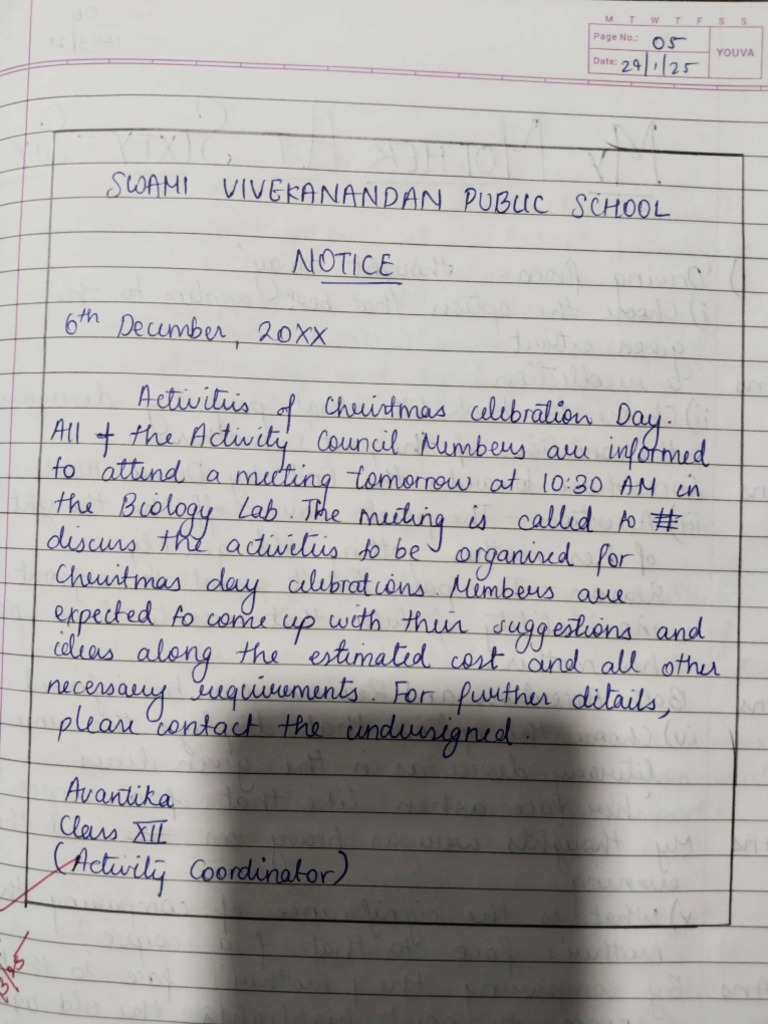 M T W T F S S
Page No.: 05
Date: 29/1/25
YOUVA
SWAMI VIVEKANANDAN PUBLIC SCHOOL
NOTICE
6th December, 20XX
Activities of Christmas celebration Day.
All of the Activity Council Members are informed
to attend a meeting tomorrow at 10:30 AM in
the Biology Lab. The meeting is called to
discuss the activities to be organised for
Christmas day celebrations Members are
expected to come up with their suggestions and
ideas along the estimated cost and all other
necessary requirements. For further ditails,
please contact the undersigned.
Avantika
Class XII
(Activity Coordinator)